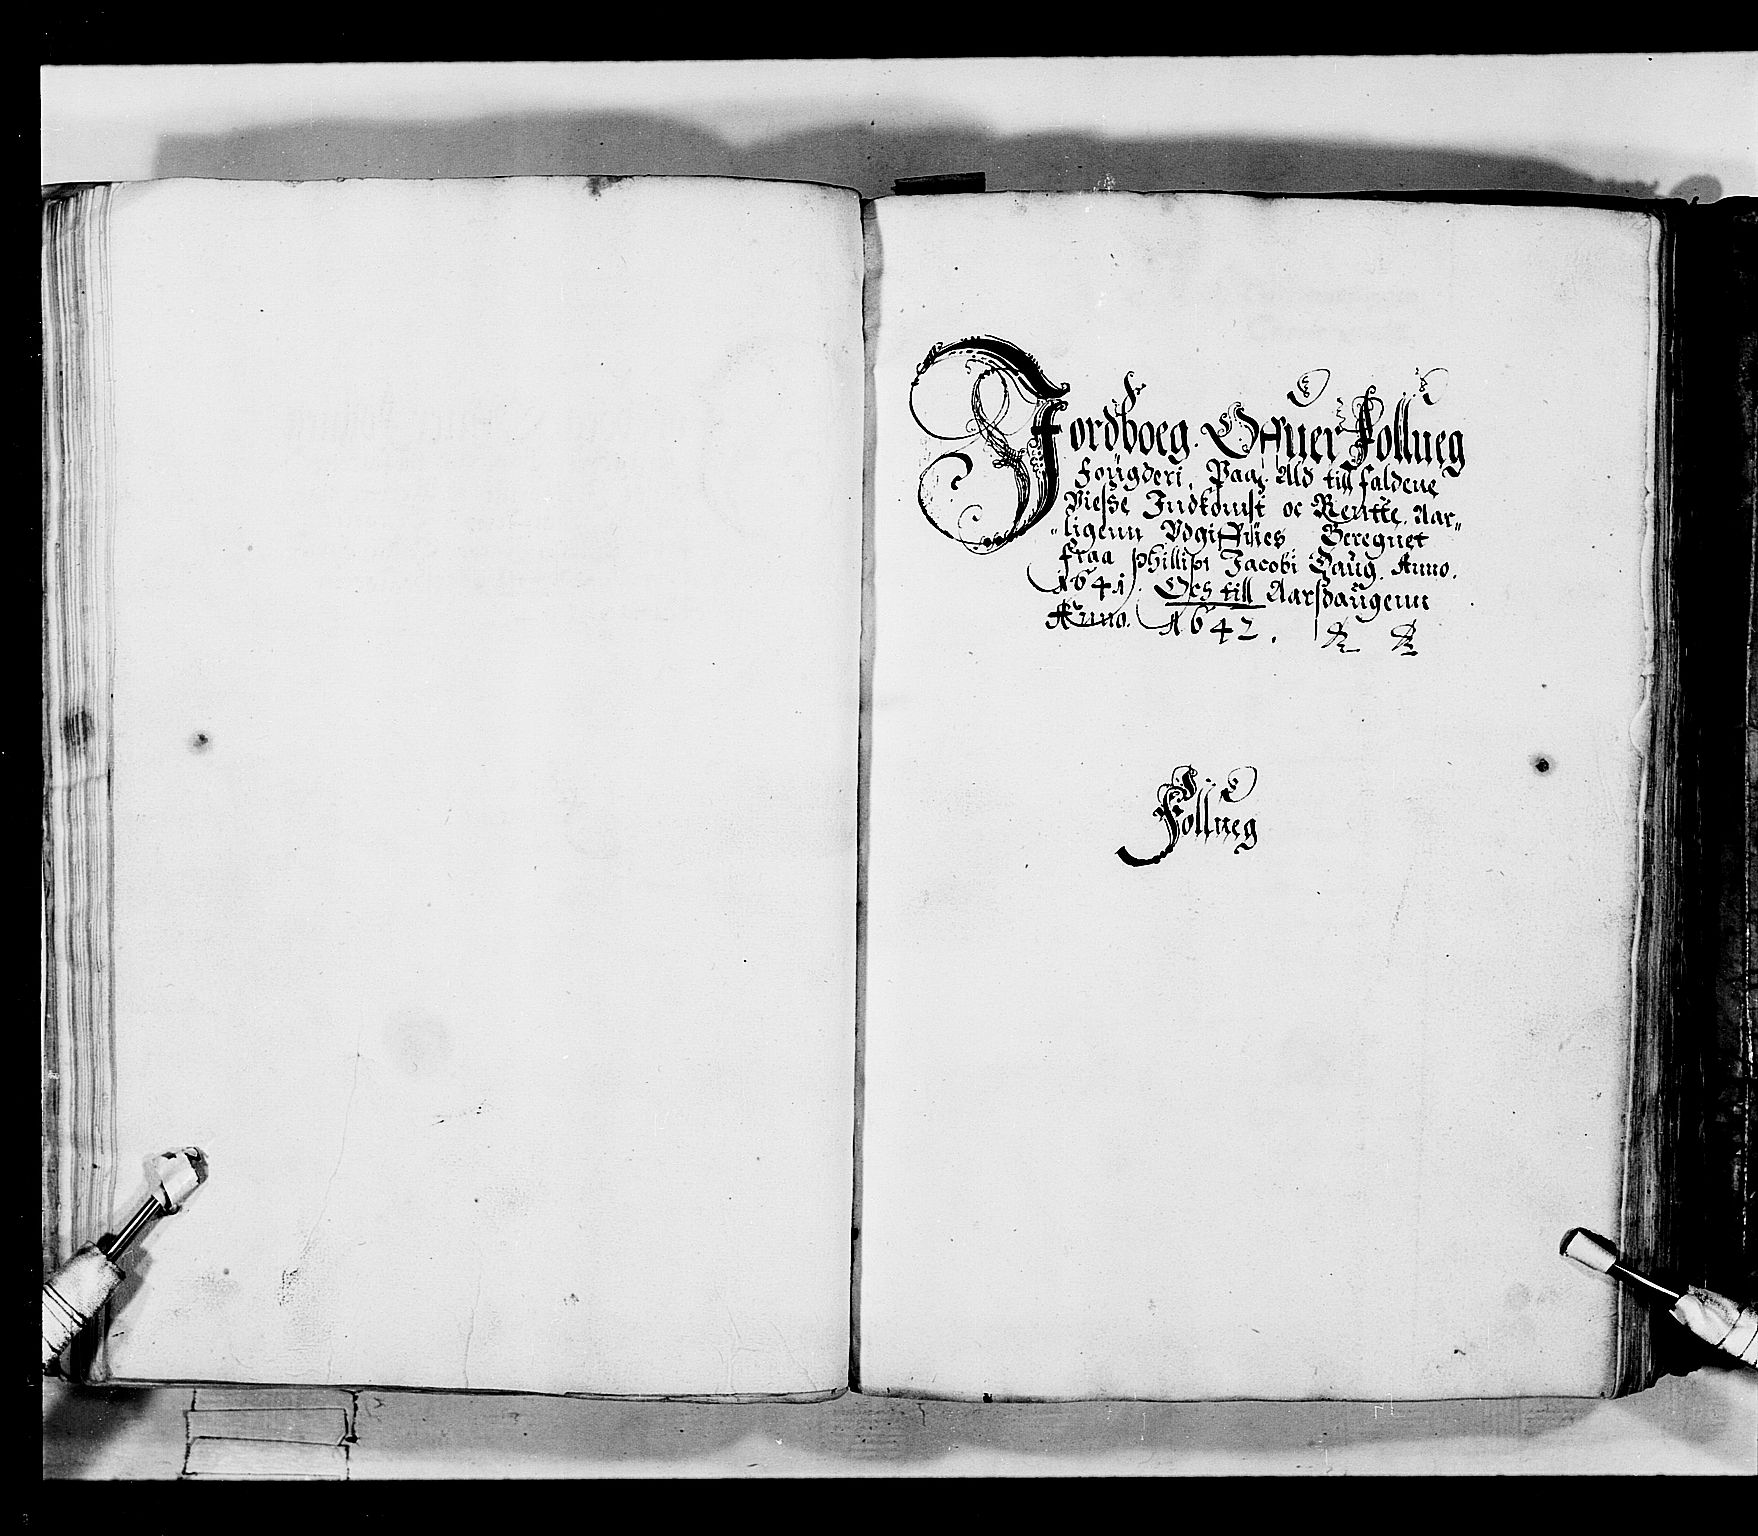 Jordboeg. Offuer Follueg
Fougderi, Paa Ald till faldene
Viesse Indkomst oc Rentte, Aar-
ligenn Vdgiffues Beregnet
fraa Phillipi Jacobi Daug. Anno.
1641. Och till Aarsdaugenn
Anno. 1642.
Follueg